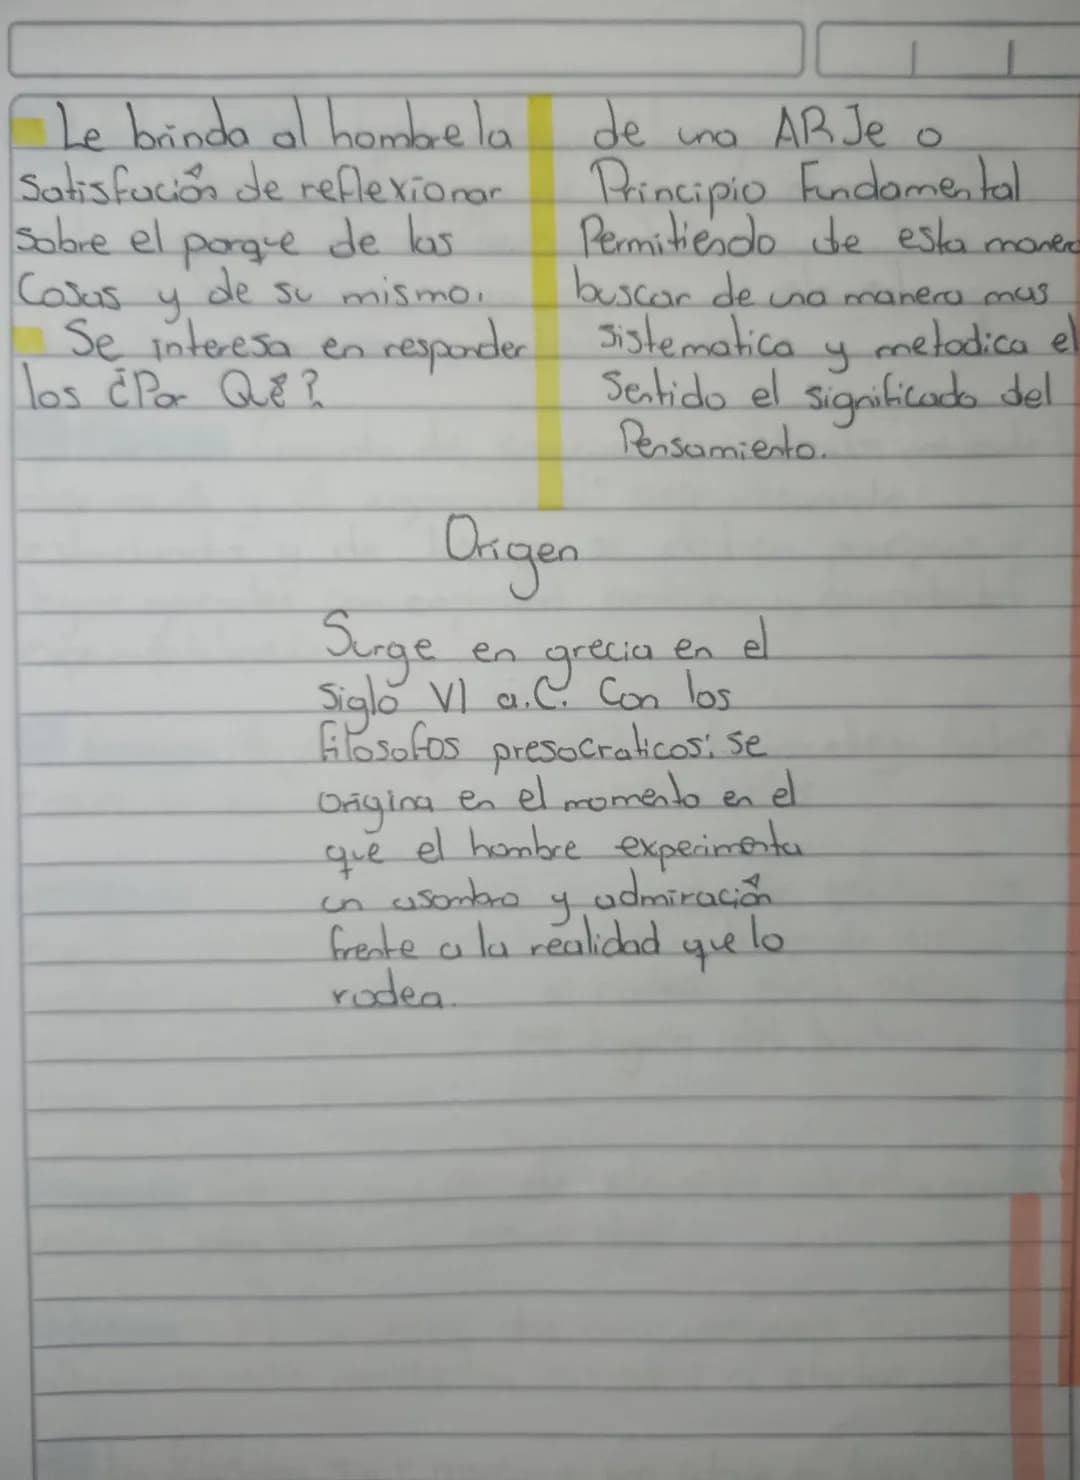 Le brinda al hombre la
Satisfación de reflexionar
Sobre el porque de las
Cosas y de su mismo.
Se interesa en responder
los ¿Por Qué?
de una ARJe o
Principio Fundamental
Permitiendo de esta manera
buscar de una manera mas
sistematica y metodica el
Sentido el significado del
Pensamiento.
Origen
Surge en grecia en el
Siglo VI a.C. Con los
filosofos presocraticos; se
Origina en el momento en el
que el hombre experimenta
un asombro y admiración
frente a la realidad que lo
rodea.